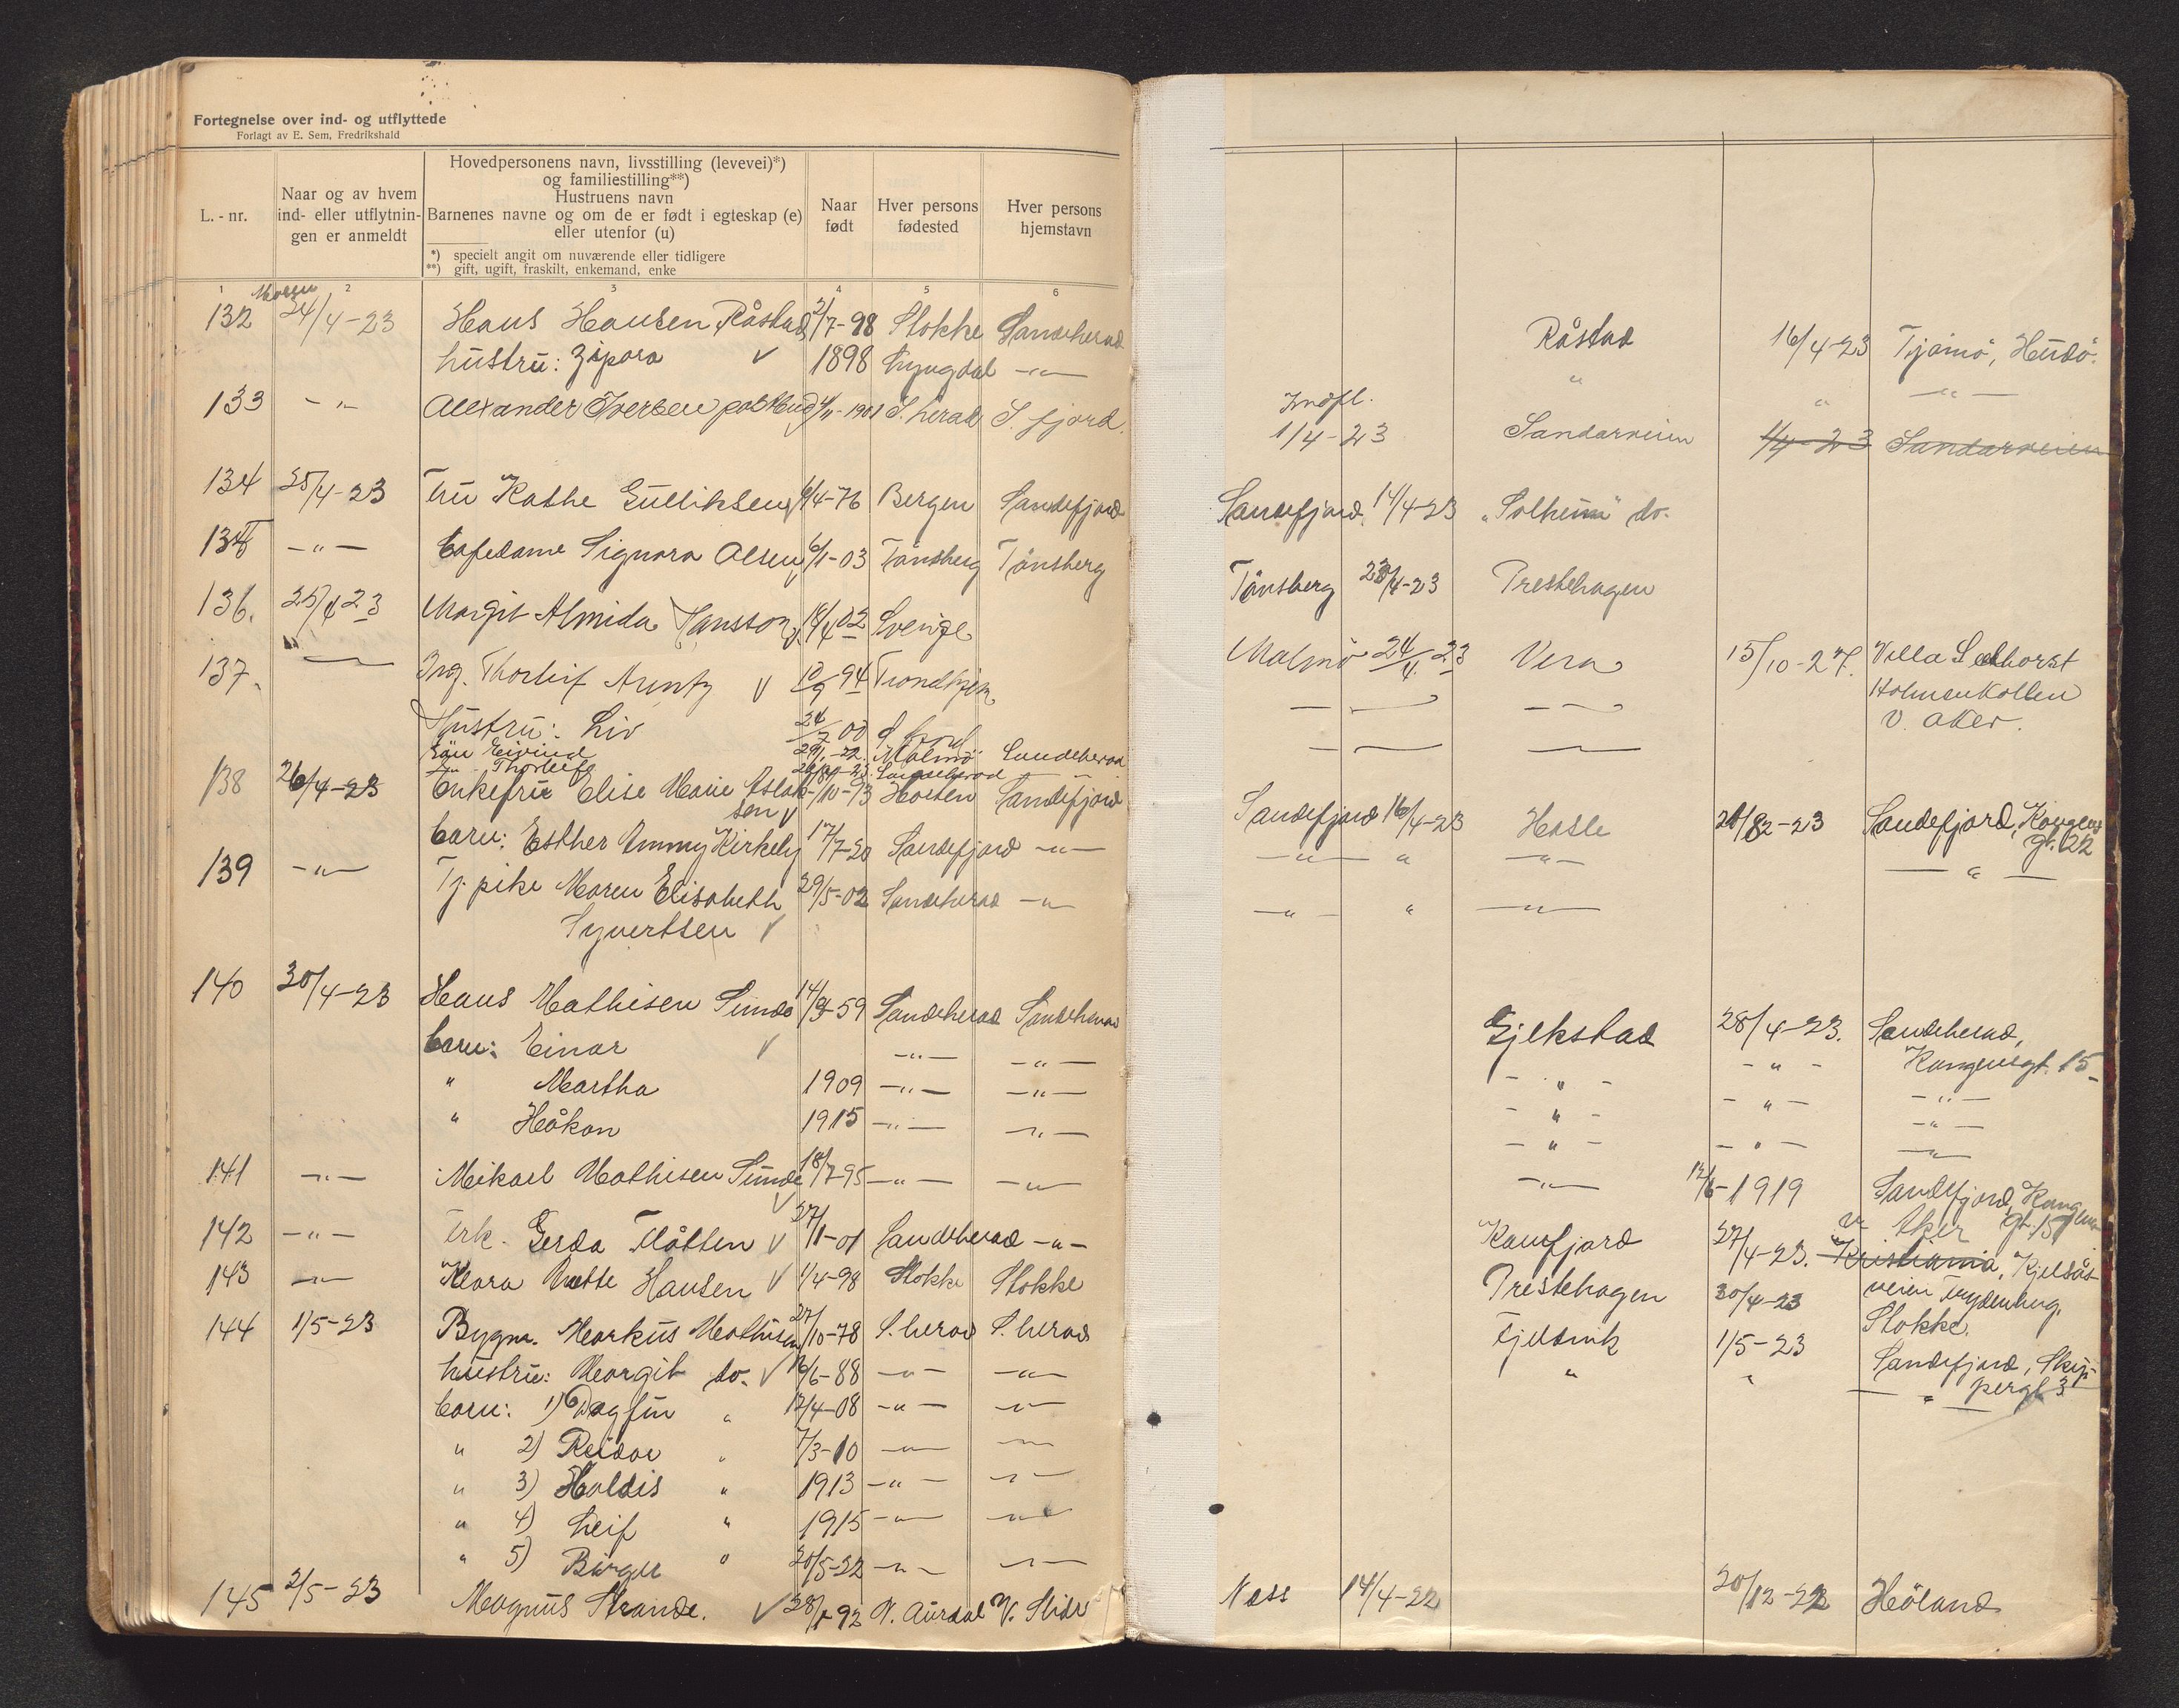 Fortegnelse over ind- og utflyttede
Forlagt av E. Sem, Fredrikshald
L.-nr.
Naar og av hvem ind- eller utflytnin-gen er anmeldt
Hovedpersonens navn, livsstilling (levevei)*)
og familiestilling**)
Hustruens navn
Barnenes navne og om de er født i egteskap (e)
eller utenfor (u)
*) specielt angit om nuværende eller tidligere
**) gift, ugift, fraskilt, enkemand, enke
Naar født
Hver persons fødested
Hver persons hjemstavn
1 2 3 4 5 6
132 24/4-23 Hans Hansen Råstad 2/7-98 Stokke Sandeherad Råstad 16/4-23 Tjømö, Hudö.
hustru: Zipora √ 1898 Lyngdal -"- " " -"-
133 -"- Alexander Iversen 4/11-1901 S. herad S. fjord. Indfl. 1/4-23 Sandarveien 1/4-23 Sandarveien
134 25/4-23 Fru Kathe Gulliksen 9/4-76 Bergen Sandefjord Sandefjord 14/4-23 "Solheim" do.
135 -"- Cafedame Signora Olsen 6/1-03 Tönsberg Tönsberg Tönsberg 23/4-23 Prestehagen
136. 25/4 23 Margit Almida Hansson √ 18/4 02 Sverige Malmö 24/4. 23 Vera 15/10-27. Villa Solhorst
Holmenkollen
V. Aker.
137. -"- Ing. Thorleif Arentz √ 10/9 94 Trondhjem -"- -"-
Hustru: Liv 24/7 00 S. fjord -"- -"-
Sön Eivind 29/1.-22. Malmö Sandeherad
-"- Thorleif Sandeherad
138 26/4-23 Enkefru Elise Marie Aslak-
sen √ /10-93 Horten Sandefjord Sandefjord 16/4-23 Hasle 23 Sandefjord, Kongens
gt. 22
barn: Esther Ammy Kirkeby 17/7-20 Sandefjord -"- -"- " -"- -"-
139 -"- Tj. pike Maren Elisabeth 29/5-02 Sandeherad -"- -"- " -"-
Syvertsen √
140 30/4-23 Hans Mathisen Sunde 14/9-59 Sandeherad Sandeherad Gjekstad 28/4-23. Sandeherad,
Kongensgt. 15
barn: Einar √ -"- -"- -"- -"- -"-
" Martha 1909 -"- -"- -"- -"- -"-
" Håkon 1915 -"- -"- -"- -"- -"-
141 -"- Mikael Mathisen Sunde √ 18/7-95 -"- -"- -"- 12/6-1919 Sandefjord, Kongens
gt. 15
142 -"- Frk. Gerda Flåtten √ 27/1-01 Sandeherad -"- Kamfjord 27/4-23. V. Aker
Kristiania, Kjelsås-
veien Frydenberg.
143 -"- Klara Anette Hansen √ 1/4-98 Stokke Stokke Prestehagen 30/4-23 Stokke.
144 1/5-23 Bygm. Markus Mathisen 27/10-78 S. herad S. herad Fjeldvik 1/5-23 Sandefjord, Skip-
pergt. 3
hustru: Margit do. √ 16/6-88 -"- -"- " " -"-
barn: 1) Dagfin " 12/4-08 -"- -"-
" 2) Reidar " 7/3-10 -"- -"-
" 3) Haldis " 1913 -"- -"-
" 4) Leif " 1915 -"- -"-
" 5) Birger " 20/5-22 -"- -"-
145 2/5-23 Magnus Strande. √ 28/ 92 N. Aurdal V. Slidre Næss 14/4-22 20/12-22 Höland